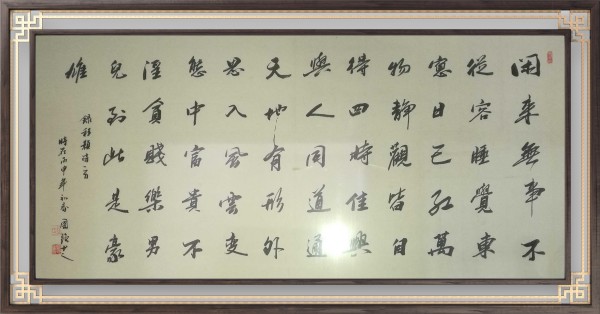 閑来無事不
從容睡覺東
窓日已紅萬
物靜觀皆自
得四時佳興
與人同道通
天地有形外
思入風雲變
態中富貴不
淫貧賤樂男
兒到此是豪
雄
錄程顥詩一首
時在丙申年初春 國